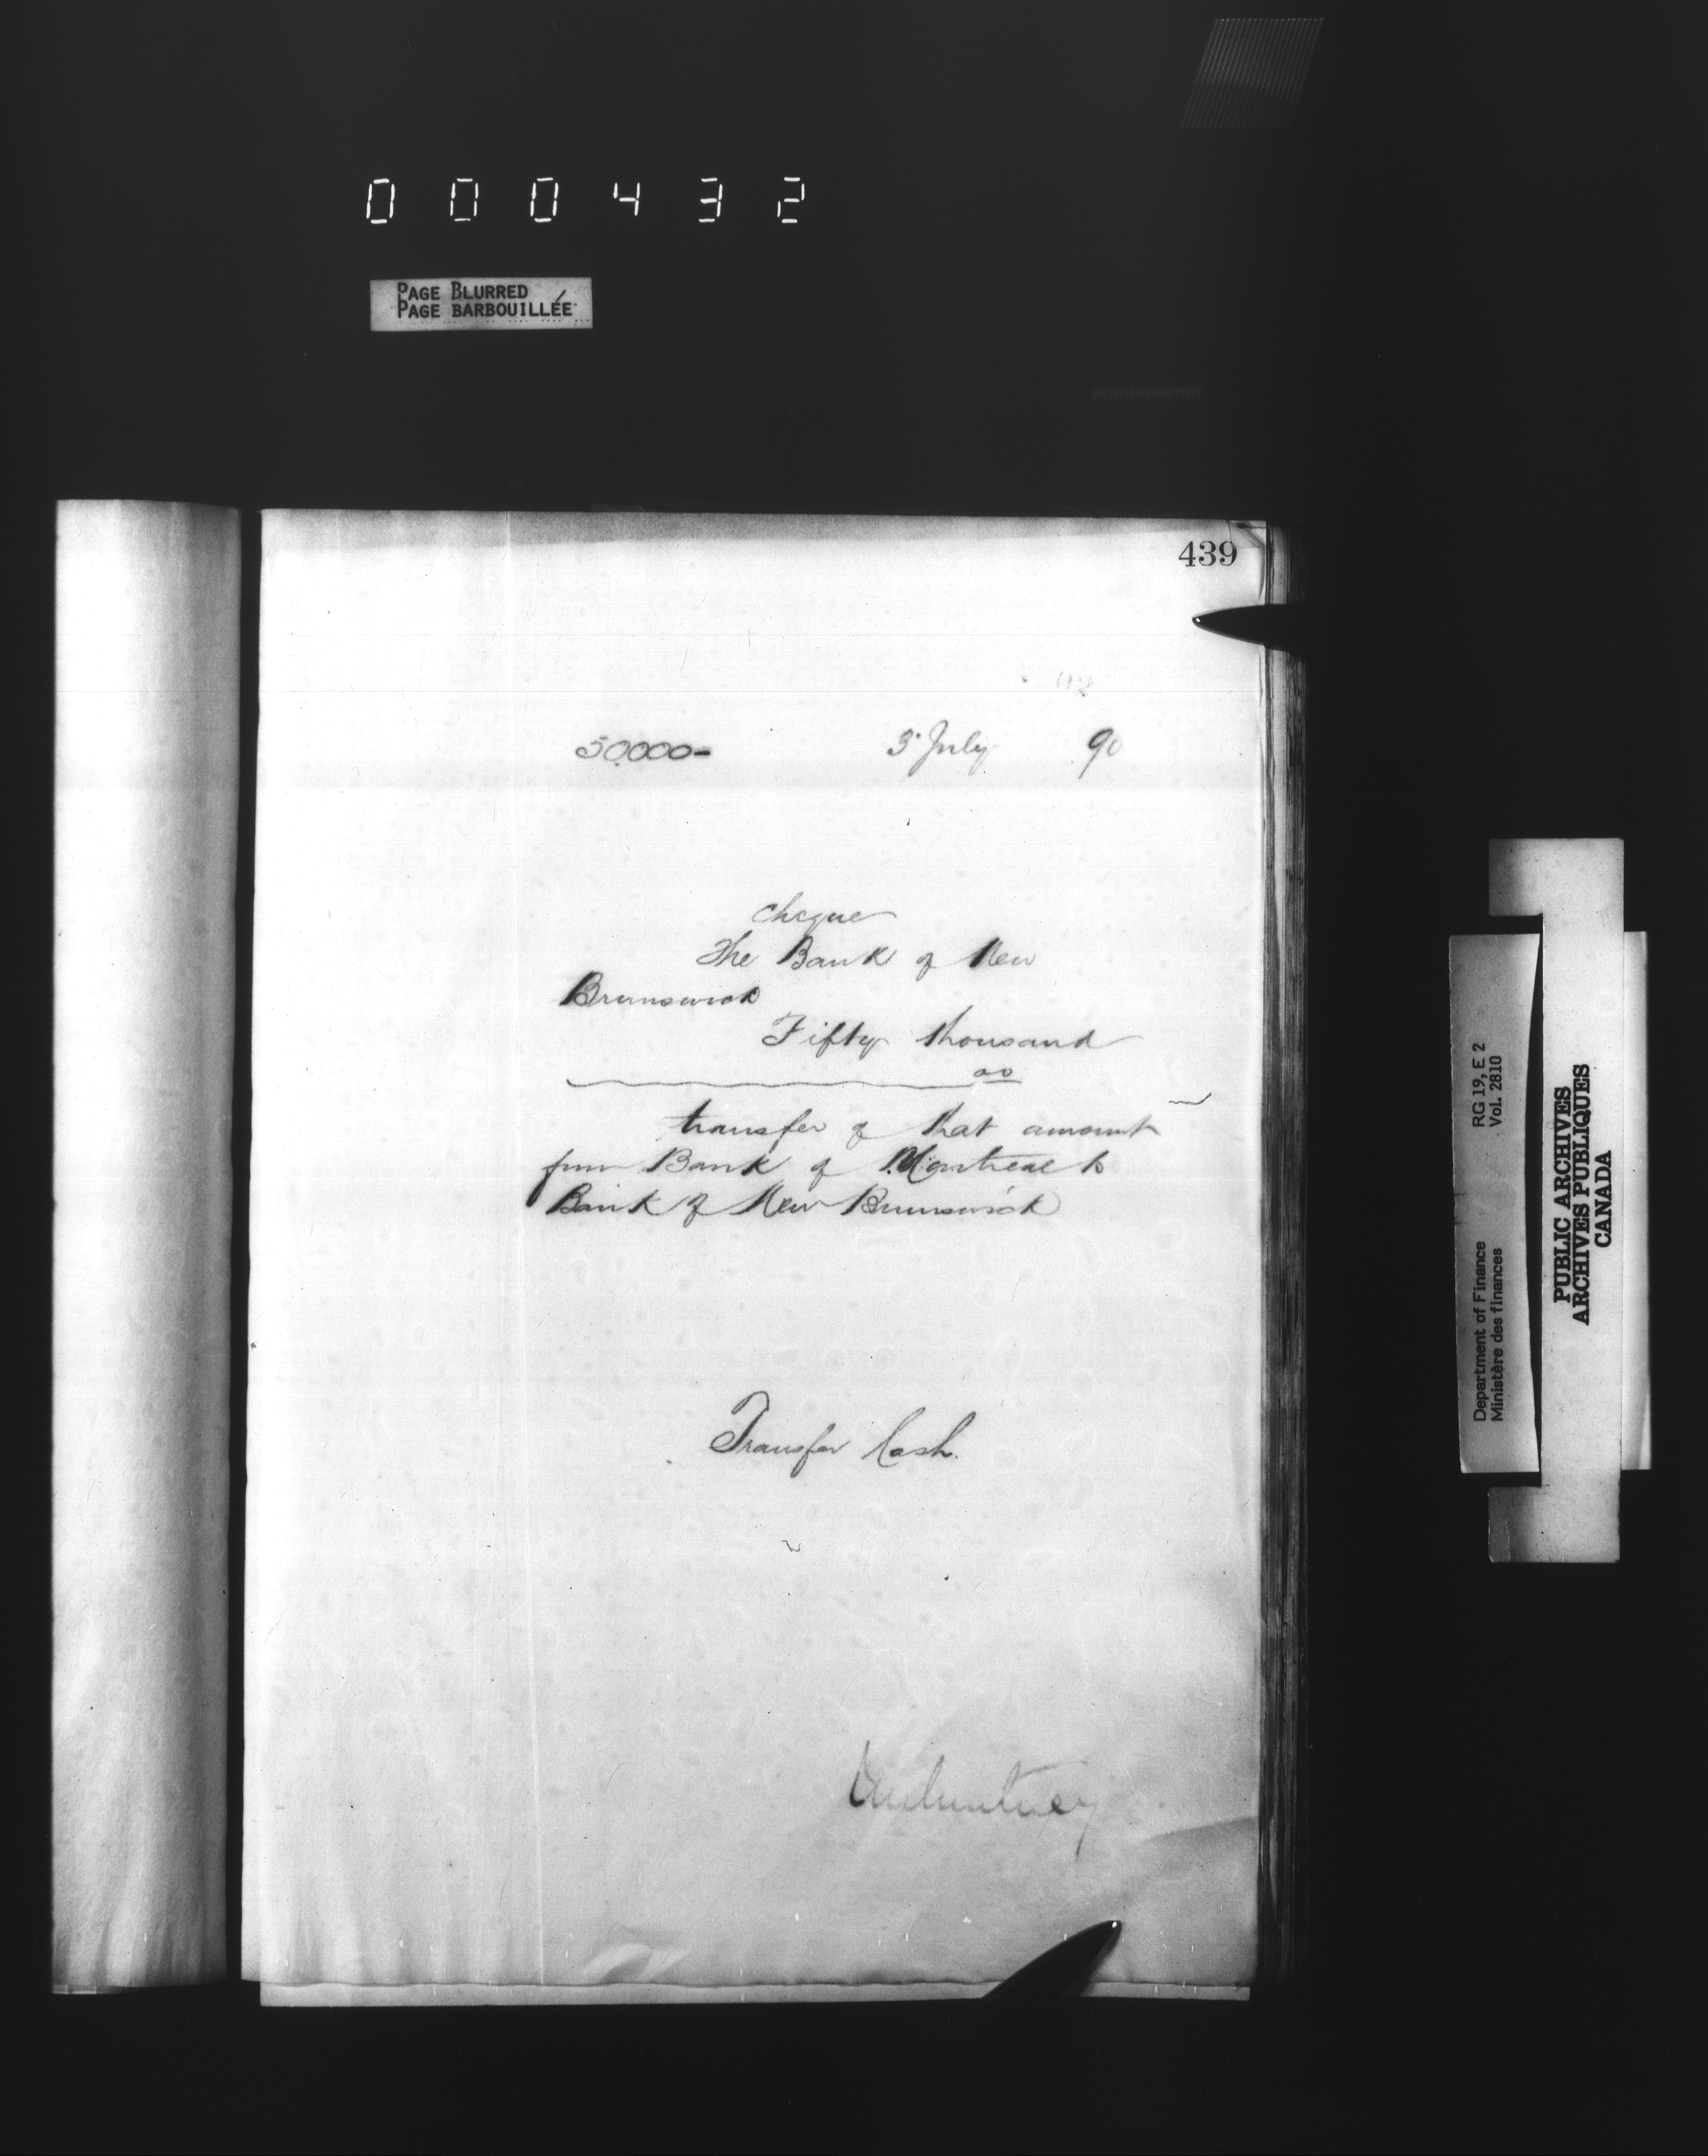 000432
PAGE BLURRED
PAGE BARBOUILLÉE
439
50,000-   3 July   90
Cheque
The Bank of New
Brunswick
Fifty thousand
00
transfer of that amount
from Bank of Montreal to
Bank of New Brunswick
Transfer Cash.
Department of Finance   RG 19, E 2
Ministère des finances   Vol. 2810
PUBLIC ARCHIVES
ARCHIVES PUBLIQUES
CANADA